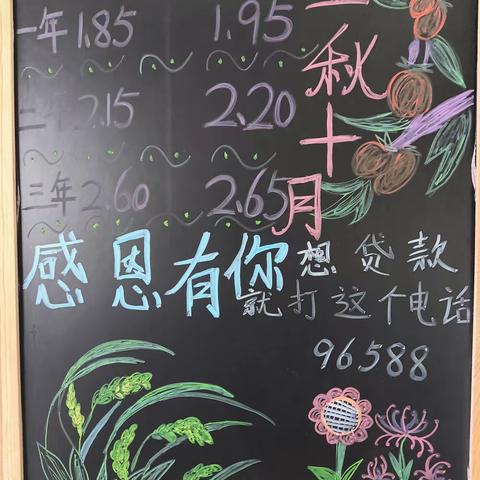 一年 1.85 1.95
二年 2.15 2.20
三年 2.60 2.65
秋十月
感恩有你
想贷款
就打这个电话
96588